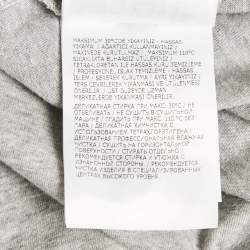 MAKSIMUM 30°C'DE YIKAYINIZ / HASSAS
YIKAMA / AĞARTICI KULLANMAYINIZ /
MAKİNEDE KURUTULMAZ / MAKSIMUM 110°C
SICAKLIKTA BUHARSIZ ÜTÜLEYİNİZ /
TETRAKLORETAN İLE HASSAS KURU TEMİZLEME
/ PROFESYONEL ISLAK TEMİZLEME - HASSAS
YIKAMA / YATAY KURUTUNUZ / AYRI
YIKAYINIZ / BUHAR VE ÜTÜLENMESİ
ÖNERİLİR / ÜST DÜZEY UZMAN
MERKEZLERDE YIKANMASI ÖNERİLİR.
ДЕЛИКАТНАЯ СТИРКА ПРИ МАКС. 30°C / НЕ
ОТБЕЛИВАТЬ / НЕ СУШИТЬ В СУШИЛЬНОЙ
МАШИНЕ / ГЛАДИТЬ ПРИ МАКС. 110°C БЕЗ
ПАРА / ДЕЛИКАТНАЯ ХИМЧИСТКА С
ИСПОЛЬЗОВАНИЕМ ТЕТРАХЛОРЭТИЛЕНА /
ДЕЛИКАТНАЯ ПРОФЕССИОНАЛЬНАЯ ВЛАЖНАЯ
ЧИСТКА / СУШИТЬ НА ГОРИЗОНТАЛЬНОЙ
ПОВЕРХНОСТИ / СТИРАТЬ ОТДЕЛЬНО /
РЕКОМЕНДУЕТСЯ СТИРКА И УТЮЖКА С
ИЗНАНКИ / РЕКОМЕНДУЕТСЯ ЧИСТКА
ИЗДЕЛИЯ В СПЕЦИАЛИЗИРОВАННЫХ ЦЕНТРАХ
ВЫСОКОГО УРОВНЯ.